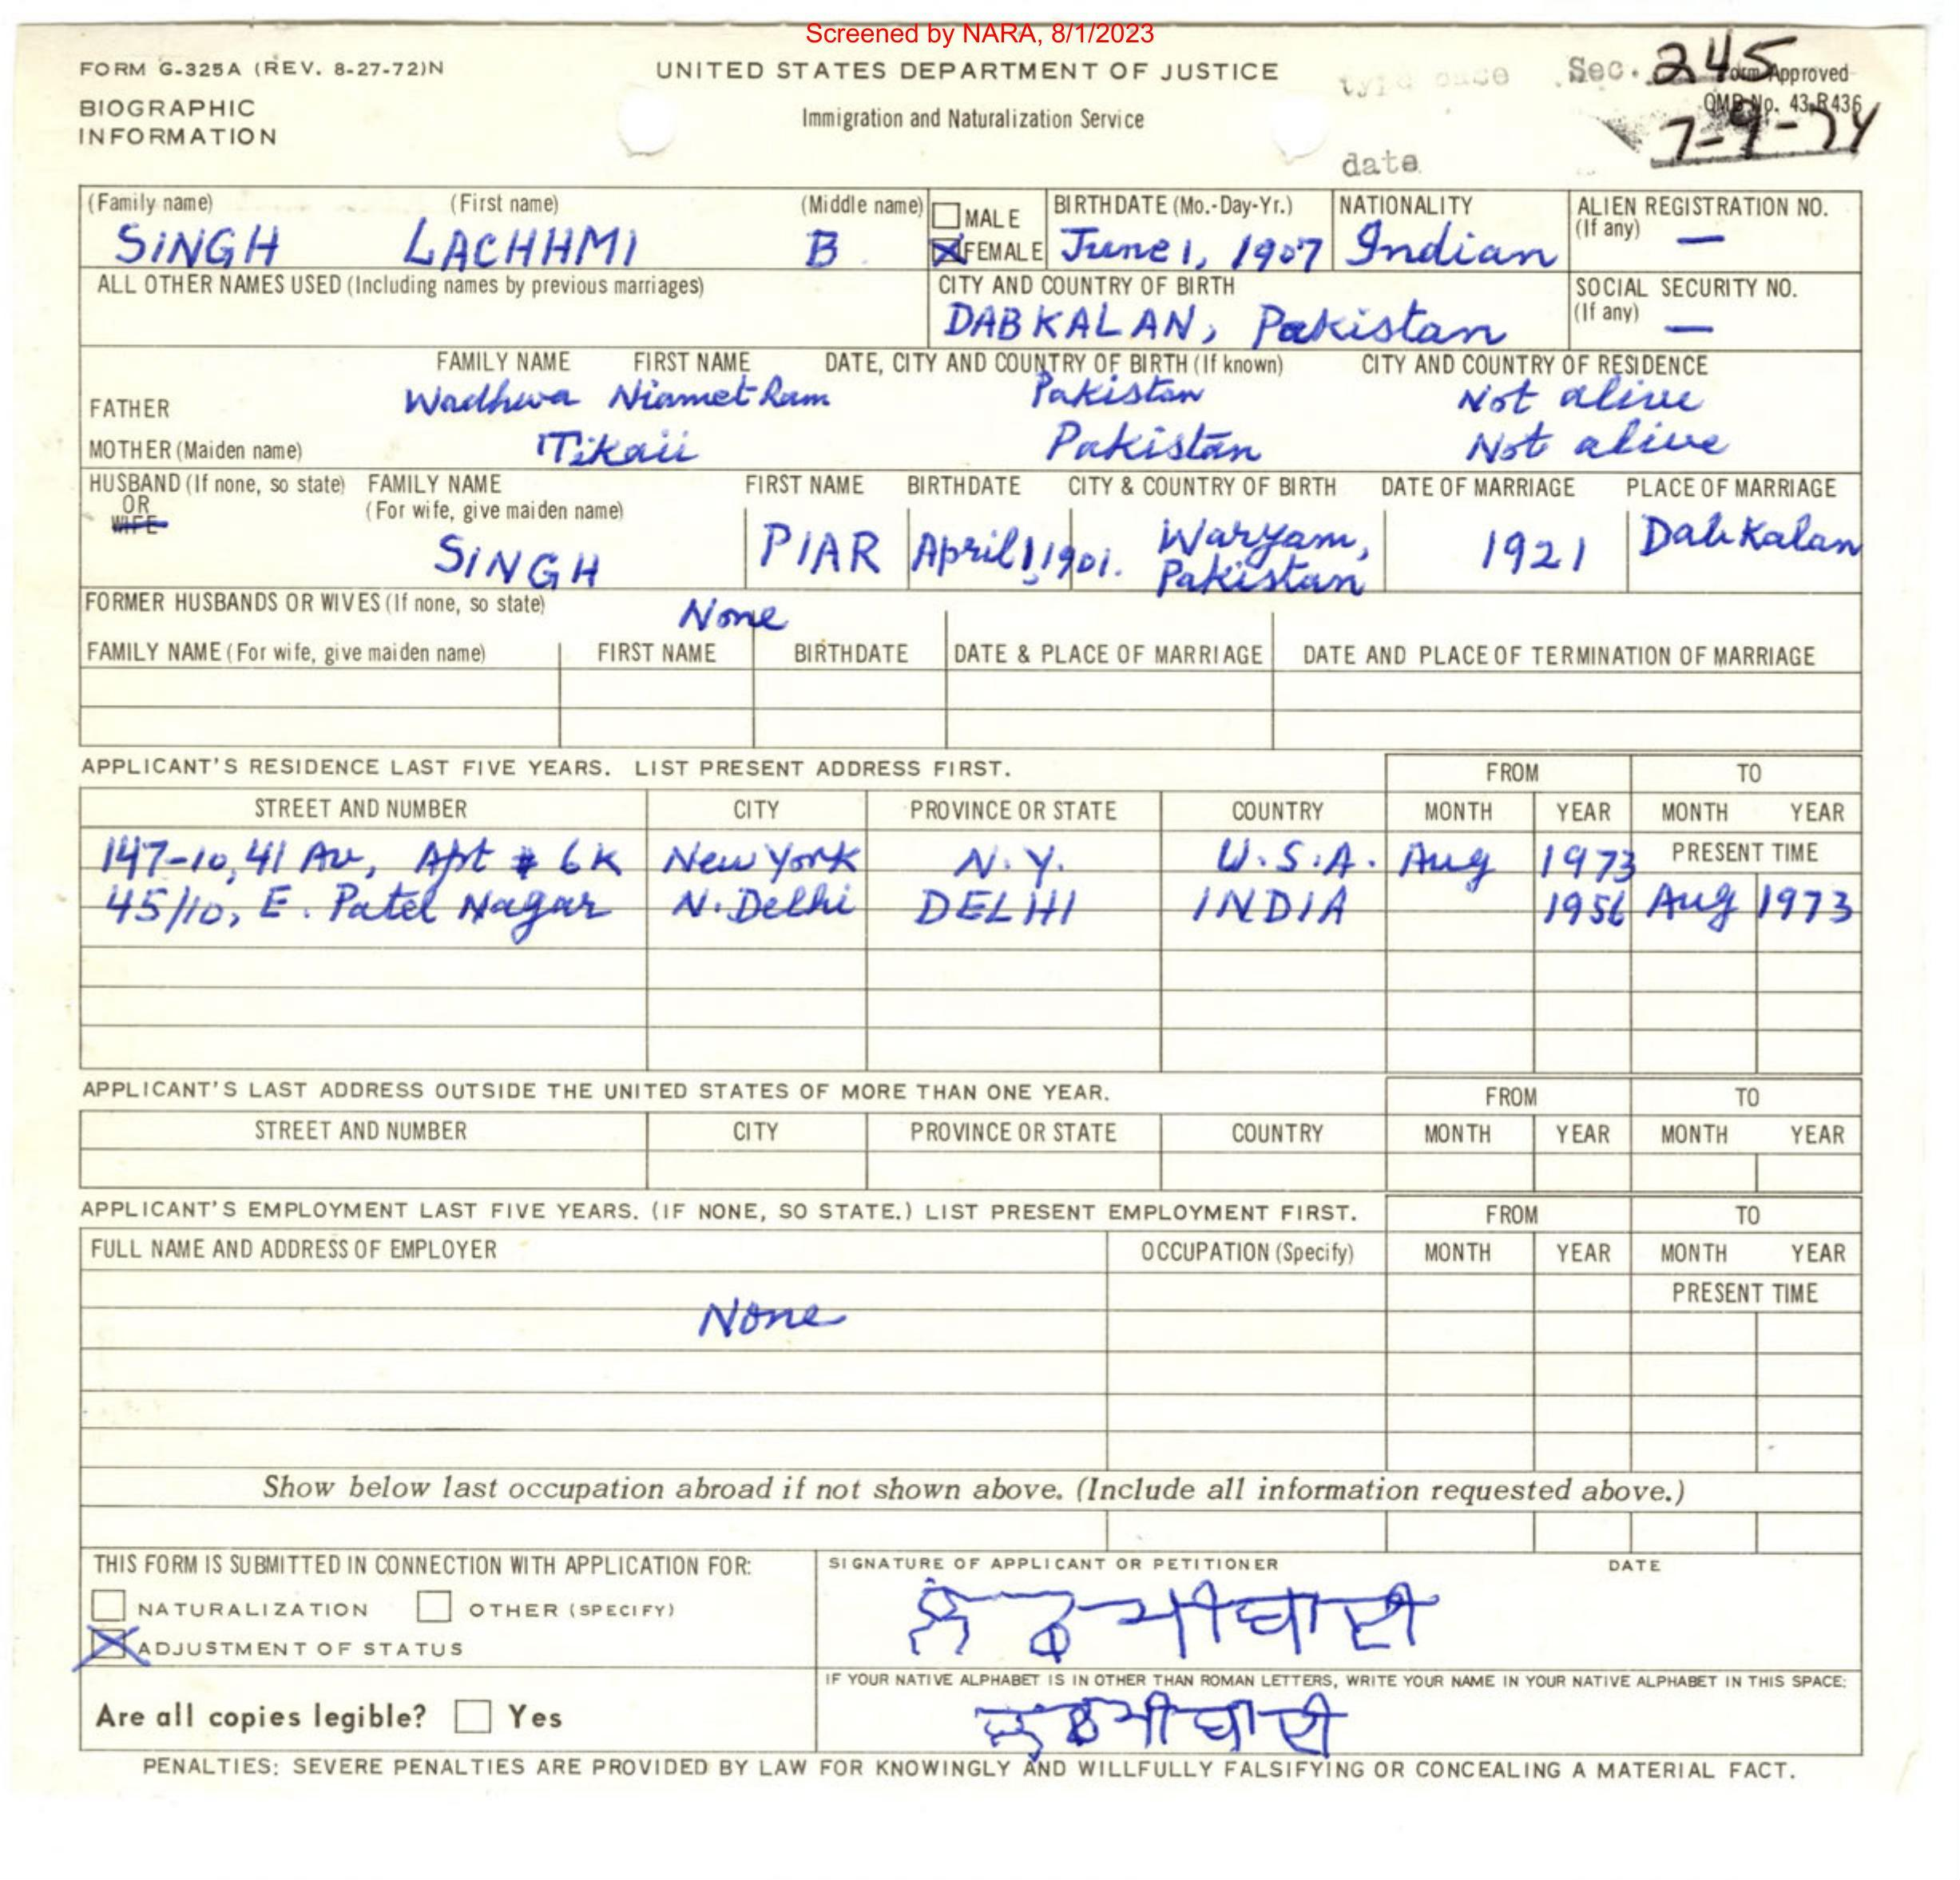 Screened by NARA, 8/1/2023
FORM G-325A (REV. 8-27-72)N
UNITED STATES DEPARTMENT OF JUSTICE
type case Sec. 245
Form Approved
OMB No. 43-R436
BIOGRAPHIC
INFORMATION
Immigration and Naturalization Service
date 7-9-74
(Family name) (First name) (Middle name) MALE BIRTHDATE (Mo.-Day-Yr.) NATIONALITY ALIEN REGISTRATION NO.
(If any) —
SINGH LACHHMI B. FEMALE June 1, 1907 Indian
ALL OTHER NAMES USED (Including names by previous marriages) CITY AND COUNTRY OF BIRTH SOCIAL SECURITY NO.
(If any) —
DAB KALAN, Pakistan
FAMILY NAME FIRST NAME DATE, CITY AND COUNTRY OF BIRTH (If known) CITY AND COUNTRY OF RESIDENCE
FATHER Wadhwa Niamet Ram Pakistan Not alive
MOTHER (Maiden name) Tikaii Pakistan Not alive
HUSBAND (If none, so state) FAMILY NAME FIRST NAME BIRTHDATE CITY & COUNTRY OF BIRTH DATE OF MARRIAGE PLACE OF MARRIAGE
OR (For wife, give maiden name)
WIFE
SINGH PIAR April 1, 1901. Waryam, Pakistan 1921 Dab Kalan
FORMER HUSBANDS OR WIVES (If none, so state) None
FAMILY NAME (For wife, give maiden name) FIRST NAME BIRTHDATE DATE & PLACE OF MARRIAGE DATE AND PLACE OF TERMINATION OF MARRIAGE
APPLICANT'S RESIDENCE LAST FIVE YEARS. LIST PRESENT ADDRESS FIRST. FROM TO
STREET AND NUMBER CITY PROVINCE OR STATE COUNTRY MONTH YEAR MONTH YEAR
147-10, 41 Av, Apt # 6K New York N.Y. U.S.A. Aug 1973 PRESENT TIME
45/10, E. Patel Nagar N. Delhi DELHI INDIA 1956 Aug 1973
APPLICANT'S LAST ADDRESS OUTSIDE THE UNITED STATES OF MORE THAN ONE YEAR. FROM TO
STREET AND NUMBER CITY PROVINCE OR STATE COUNTRY MONTH YEAR MONTH YEAR
APPLICANT'S EMPLOYMENT LAST FIVE YEARS. (IF NONE, SO STATE.) LIST PRESENT EMPLOYMENT FIRST. FROM TO
FULL NAME AND ADDRESS OF EMPLOYER OCCUPATION (Specify) MONTH YEAR MONTH YEAR
PRESENT TIME
None
Show below last occupation abroad if not shown above. (Include all information requested above.)
THIS FORM IS SUBMITTED IN CONNECTION WITH APPLICATION FOR: SIGNATURE OF APPLICANT OR PETITIONER DATE
NATURALIZATION OTHER (SPECIFY)
ADJUSTMENT OF STATUS
IF YOUR NATIVE ALPHABET IS IN OTHER THAN ROMAN LETTERS, WRITE YOUR NAME IN YOUR NATIVE ALPHABET IN THIS SPACE:
Are all copies legible? Yes
PENALTIES: SEVERE PENALTIES ARE PROVIDED BY LAW FOR KNOWINGLY AND WILLFULLY FALSIFYING OR CONCEALING A MATERIAL FACT.